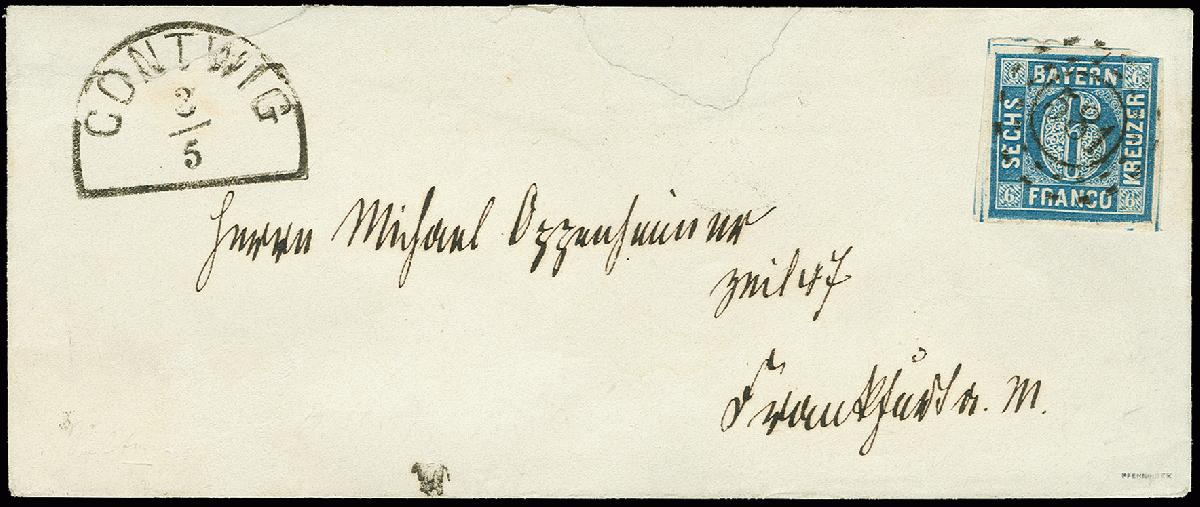 CONTWIG
3
5
BAYERN
SECHS
KREUZER
FRANCO
6
6
6
6
Herrn Michael Oppenheimer
Zeil 47
Frankfurt a. M.